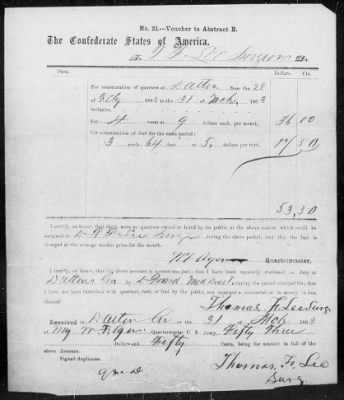 No. 21.—Voucher to Abstract B.
The Confederate States of America.
To T. F. Lee Surgeon Dr.
Date. Dollars Cts.
For commutation of quarters at Dalton from the 28
of Feby 1863 to 31 of Mch 1863
inclusive.
For 4 rooms at 9 dollars each, per month, 36 00
For commutation of fuel for the same period:
3 cords 64 feet at 5 dollars per cord. 17 50
53.50
I certify, on honor, that there were no quarters owned or hired by the public at the above station which could be
assigned to Surg during the above period, and that the fuel is
charged at the average market price for the month.
W Ayer Quartermaster.
I certify, on honor, that the above account is correct and just; that I have been regularly stationed on duty at
Dalton Ga during the period charged for; that I
have not been furnished with quarters, rent, or fuel by the public, nor received a commutation in money in lieu
thereof.
Thomas F. Lee Surg.
Received at Dalton Ga the 31 of Mch 1863
Quartermaster C. S. Army, Fifty Three
Dollars and Fifty Cents, being the amount in full of the
above Account.
Signed duplicates.
Thomas F. Lee
Surg